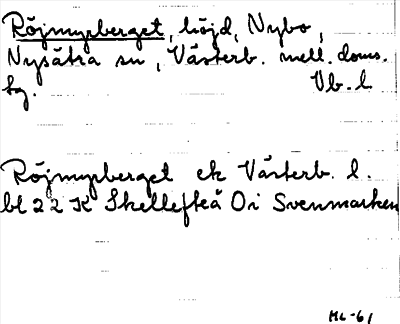 Röjmyrberget, höjd, Nybo,
Nysätra sn, Västerb. mell. doms.
hg. Vb. l
Röjmyrberget ek Västerb. l.
bl 22 K Skellefteå Oi Svenmarken
ML-61